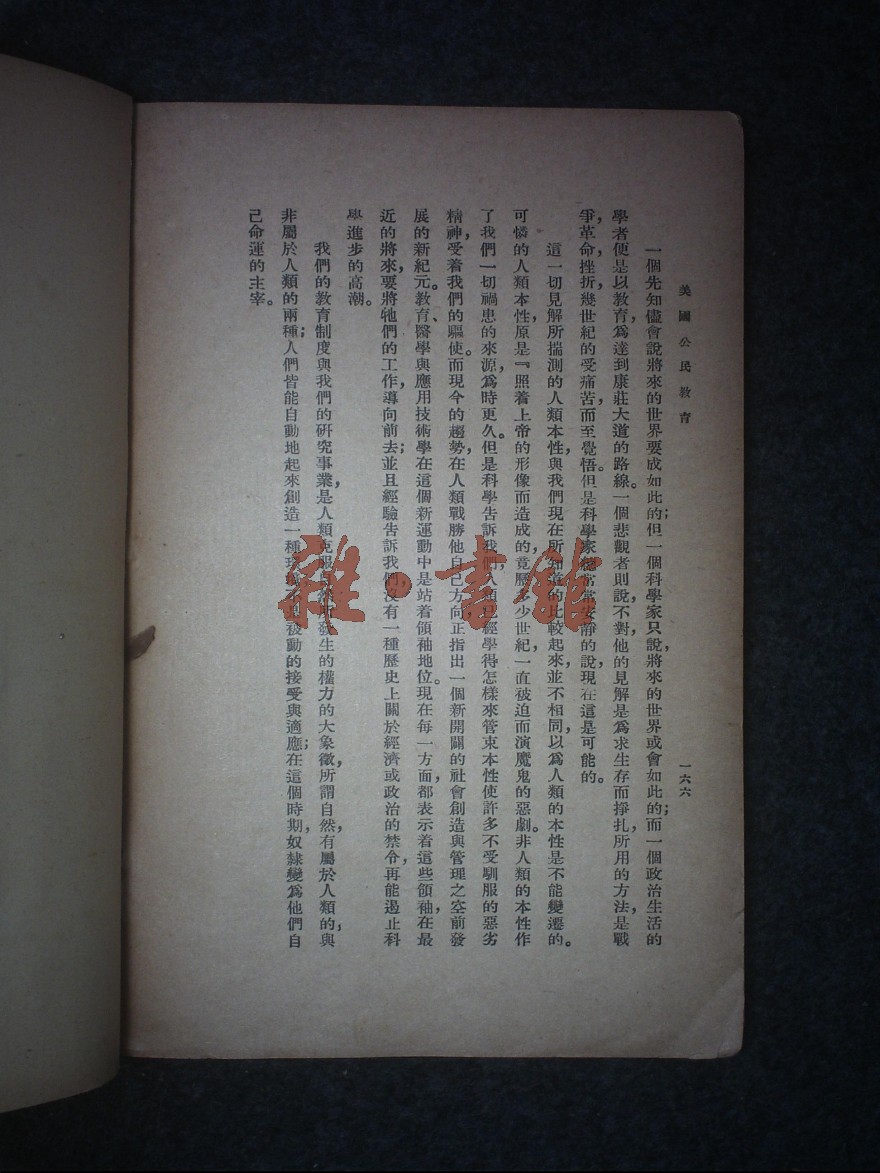 美國公民教育
一六六
一個先知儘會說將來的世界要成如此的；但一個科學家只說，將來的世界或會如此的；而一個政治生活的
學者便是以教育，爲達到康莊大道的路線。一個悲觀者則說，不對，他的見解是爲求生存而掙扎，所用的方法，是戰
爭，革命，挫折，幾世紀的受痛苦，而至覺悟。但是科學家都常常安靜的說，現在這是可能的。
這一切見解所揣測的人類本性，與我們現在所知道的比較起來，並不相同，以爲人類的本性是不能變遷的。
可憐的人類本性，原是『照着上帝的形像而造成的，竟歷多少世紀，一直被迫而演魔鬼的惡劇。非人類的本性作
了我們一切禍患的來源，爲時更久。但是科學告訴我們，人類已經學得怎樣來管束本性使許多不受馴服的惡劣
精神，受着我們的驅使。而現今的趨勢，在人類戰勝他自己方向正指出一個新開闢的社會創造與管理之空前發
展的新紀元。教育、醫學與應用技術學在這個新運動中是站着領袖地位。現在每一方面，都表示着這些領袖，在最
近的將來，要將牠們的工作，導向前去；並且經驗告訴我們，沒有一種歷史上關於經濟或政治的禁令，再能遏止科
學進步的高潮。
我們的教育制度與我們的研究事業，是人類克服自然所發生的權力的大象徵，所謂自然，有屬於人類的，與
非屬於人類的兩種；人們皆能自動地起來創造一種環境不是被動的接受與適應；在這個時期，奴隸變爲他們自
己命運的主宰。
雜·書館